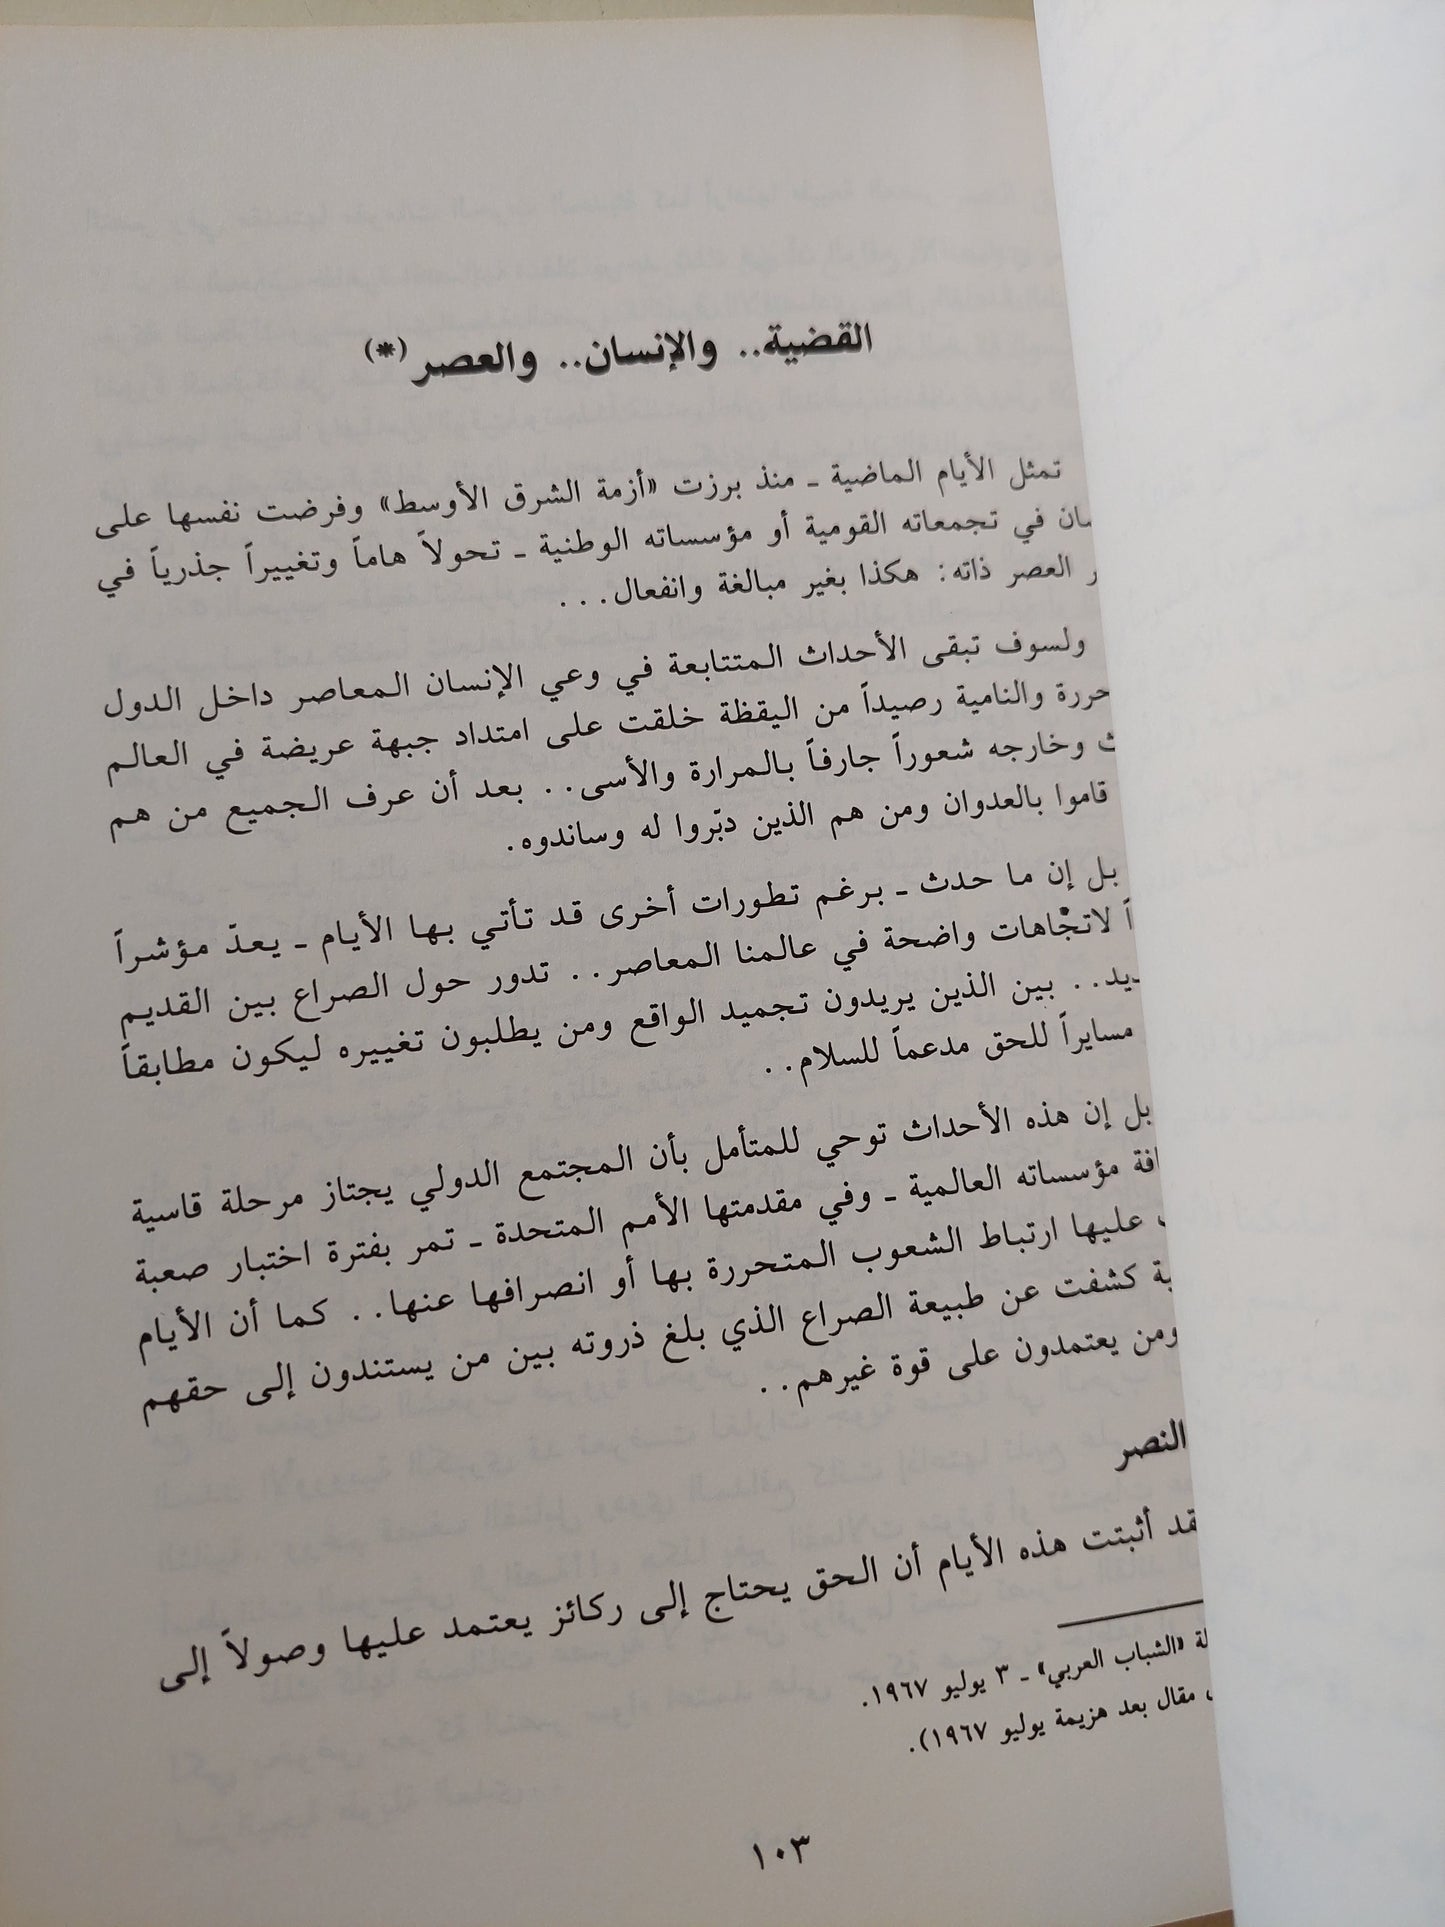 القضية.. والإنسان.. والعصر (*)
تمثل الأيام الماضية ـ منذ برزت «أزمة الشرق الأوسط» وفرضت نفسها على
في تجمعاته القومية أو مؤسساته الوطنية ـ تحولاً هاماً وتغييراً جذرياً في
العصر ذاته: هكذا بغير مبالغة وانفعال...
ولسوف تبقى الأحداث المتتابعة في وعي الإنسان المعاصر داخل الدول
والنامية رصيداً من اليقظة خلقت على امتداد جبهة عريضة في العالم
وخارجه شعوراً جارفاً بالمرارة والأسى.. بعد أن عرف الجميع من هم
قاموا بالعدوان ومن هم الذين دبّروا له وساندوه.
بل إن ما حدث ـ برغم تطورات أخرى قد تأتي بها الأيام ـ يعدّ مؤشراً
لاتجاهات واضحة في عالمنا المعاصر.. تدور حول الصراع بين القديم
بين الذين يريدون تجميد الواقع ومن يطلبون تغييره ليكون مطابقاً
مسايراً للحق مدعماً للسلام..
بل إن هذه الأحداث توحي للمتأمل بأن المجتمع الدولي يجتاز مرحلة قاسية
مؤسساته العالمية ـ وفي مقدمتها الأمم المتحدة ـ تمر بفترة اختبار صعبة
عليها ارتباط الشعوب المتحررة بها أو انصرافها عنها.. كما أن الأيام
كشفت عن طبيعة الصراع الذي بلغ ذروته بين من يستندون إلى حقهم
ومن يعتمدون على قوة غيرهم..
النصر
أثبتت هذه الأيام أن الحق يحتاج إلى ركائز يعتمد عليها وصولاً إلى
«الشباب العربي» ـ ٣ يوليو ١٩٦٧.
مقال بعد هزيمة يوليو ١٩٦٧).
١٠٣